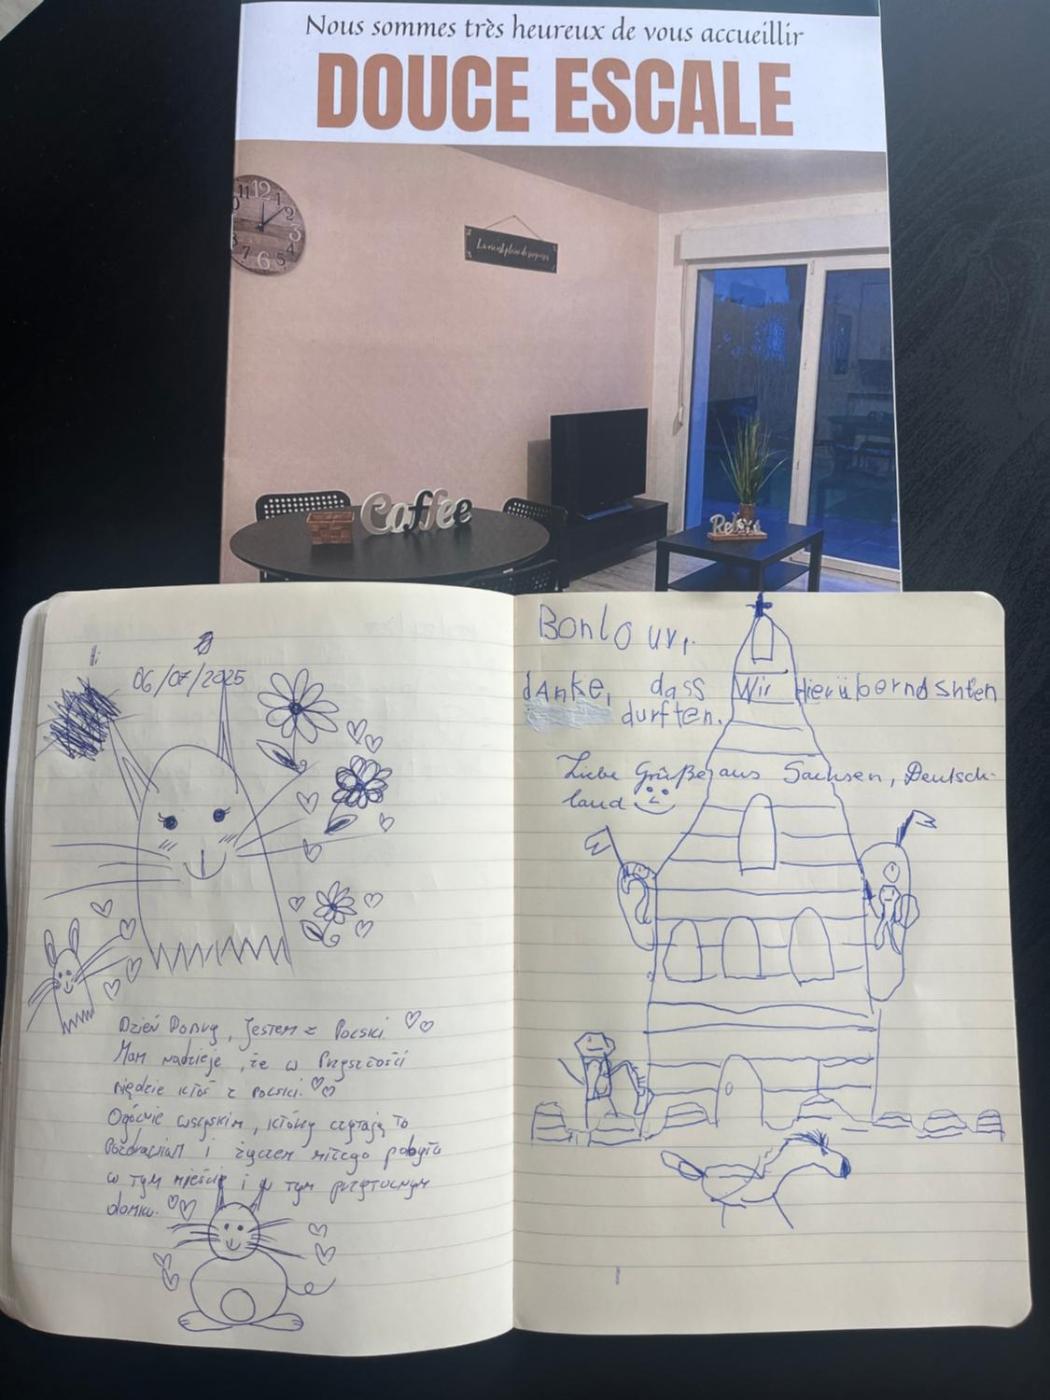 Nous sommes très heureux de vous accueillir
DOUCE ESCALE
11 12 1
2
3
7 6 5
Coffee
Relax
06/07/2025
Dzień Dobry, Jestem z Polski.
Mam nadzieje, że w Przyszłości
będzie ktoś z Polski.
Ogólnie wszyskim, którzy czytają to
Pozdrawiam i życzem miłego pobytu
w tym mieście i w tym przytulnym
domku.
Bonlour,
dAnke, dass Wir Hierübernashten
durften.
Liebe Grüße aus Sachsen, Deutsch-
land